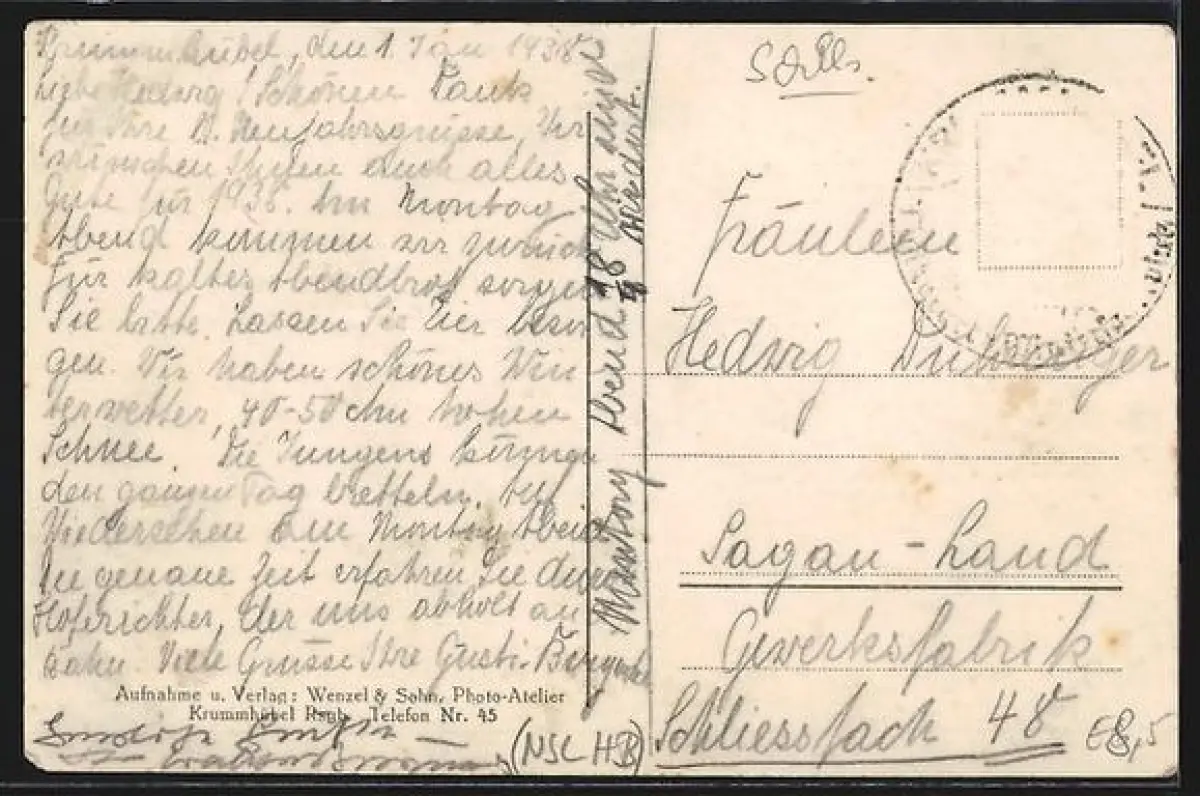 Krummhübel, den 1. Jan 1938
Liebe Hedwig! Schönen Dank
für Ihre Neujahrsgrüsse, Wir
wünschen Ihnen auch alles
Gute für 1938. Am Montag
Abend kommen wir zurück
Für kaltes Abendbrot sorgen
Sie bitte. Lassen Sie Bier besor
gen. Wir haben schönes Win
terwetter, 40-50 cm hohen
Schnee. Die Jungens können
den ganzen Tag bretteln. Auf
Wiedersehen am Montag Abend
Die genaue Zeit erfahren Sie durch
Hoferichter, der uns abholt an
Bahn. Viele Grüsse Ihre Gusti
Montag Abend 18 Uhr
Aufnahme u. Verlag: Wenzel & Sohn, Photo-Atelier
Krummhübel Rsgb. Telefon Nr. 45
(NSL HB)
Fräulein
Hedwig
Sagan-Land
Gewerksfabrik
Schliessfach 48
E8,5